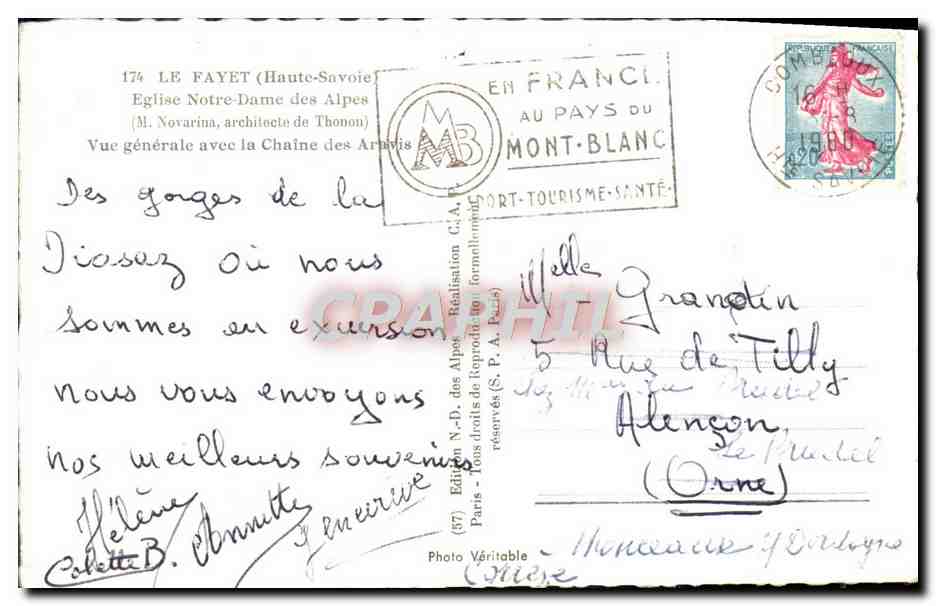 174 LE FAYET (Haute-Savoie)
Eglise Notre-Dame des Alpes
(M. Novarina, architecte de Thonon)
Vue générale avec la Chaîne des Aravis
MMB
EN FRANCE
AU PAYS DU
MONT-BLANC
SPORT-TOURISME-SANTÉ
REPUBLIQUE FRANÇAISE
COMBLOUX
16 H
8
1960
0,20
HTE SAVOIE
Des gorges de la
Diosaz où nous
sommes en excursion
nous vous envoyons
nos meilleurs souvenirs
Hélène
Colette B. Annette Genevieve
(57) Edition N.-D. des Alpes Réalisation C.A.P.
Paris - Tous droits de Reproduction formellement
réservés (S. P. A. Paris)
CRAPHIL
Melle Grandin
5 Rue de Tilly
Alençon
(Orne)
Monceaux s/ Dordogne
Corrèze
Photo Véritable